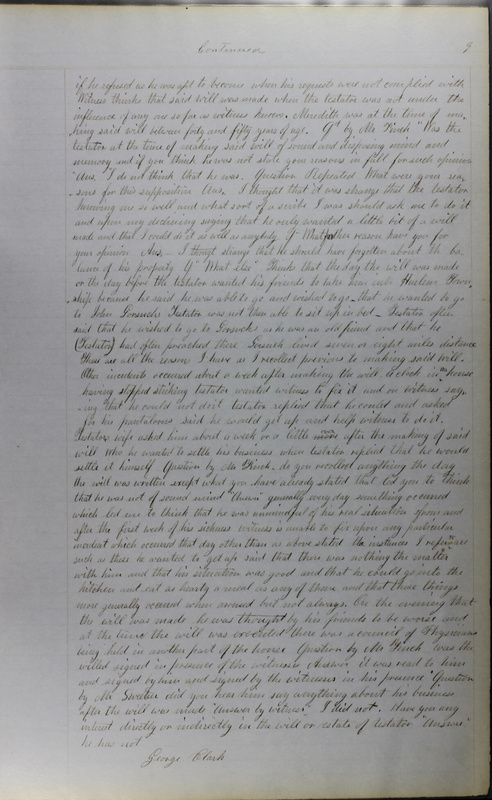 Continued 9
if he refused as he was apt to become when his requests were not complied with
Witness thinks that said will was made when the testator was not under the
influence of any one so far as witness knows. Meredith was at the time of ma-
king said will between forty and fifty years of age. Q by Mr Finch Was the
testator at the time of making said will of sound and disposing mind and
memory and if you think he was not state your reasons in full for such opinion
Ans I do not think that he was. Question Repeated What were your rea-
sons for this supposition Ans. I thought that it was strange that the testator
knowing me so well and what sort of a scribe I was should ask me to do it
and upon my declining saying that he only wanted a little bit of a will
made and that I could do it as well as anybody Q What other reason have you for
your opinion Ans - I thought strange that he should have forgotten about the ba-
lance of his property Q What else Think that the day the will was made
or the day before the testator wanted his friends to take him into Harlem Town-
ship because he said he was able to go and wished to go that he wanted to go
to John Gorsuchs Testator was not then able to sit up in bed - Testator often
said that he wished to go to Gorsuchs as he was an old friend and that he
(Testator) had often preached there Gorsuch lived seven or eight miles distance
These are all the reasons I have as I recollect previous to making said will -
Other incidents occurred about a week after making the will A clock in the house
having stopped striking testator wanted witness to fix it and on witness say-
ing that he could not do it testator replied that he could and asked
for his pantaloons said he would get up and help witness to do it.
Testators wife asked him about a week or a little more after the making of said
will who he wanted to settle his business when testator replied that he would
settle it himself Question by Mr Finch. do you recollect anything the day
the will was written except what you have already stated that led you to think
that he was not of sound mind Answer generally every day something occurred
which led me to think that he was unmindful of his real situation
after the first week of his sickness witness is unable to fix upon any particular
incident which occurred that day other than as above stated the instances I refer
such as these he wanted to get up said that there was nothing the matter
with him and that his situation was good and that he could go into the
kitchen and eat as hearty a meal as any of them and that these things
more generally occurred when but not always. On the evening that
the will was made he was thought by his friends to be worse and
at the time the will was executed there was a council of Physicians
being held in another part of the house Question by Mr Finch was the
will signed in presence of the witnesses Answer it was read to him
and signed by him and signed by the witnesses in his presence Question
by Mr Sweetser did you hear him say anything about his business
after the will was made Answer by witness I did not. Have you any
interest directly or indirectly in the will or estate of testator Answer
he has not
George Clark